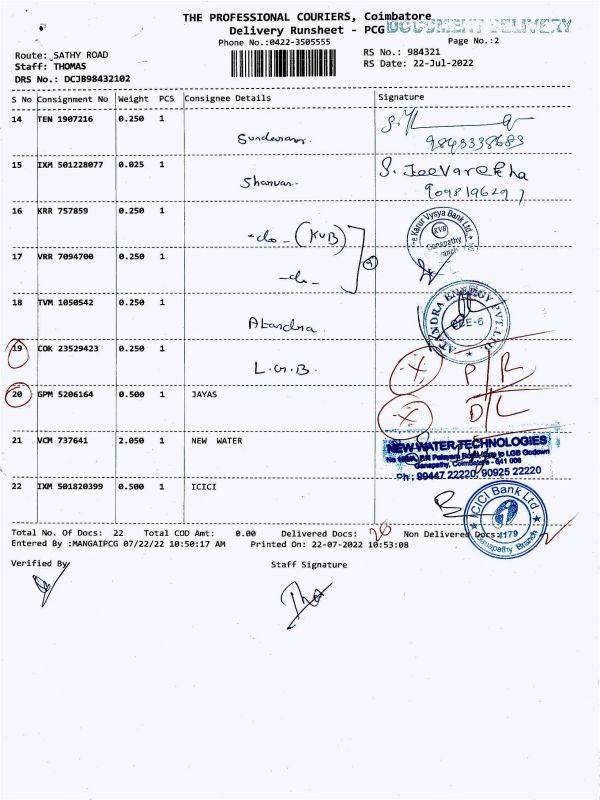 THE PROFESSIONAL COURIERS, Coimbatore
Delivery Runsheet - PCG DOCUMENT DELIVERY
Phone No.:0422-3505555
Page No.:2
Route: SATHY ROAD
RS No.: 984321
Staff: THOMAS
RS Date: 22-Jul-2022
DRS No.: DCJB98432102
S No Consignment No Weight PCS Consignee Details Signature
14 TEN 1907216 0.250 1
Sundaram
15 IXM 501228077 0.025 1 S. Jeevarekha
Sharvan
16 KRR 757859 0.250 1
-do- (KVB)
Karur Vysya Bank Ltd.
KVB
Ganapathy
Branch
17 VRR 7094700 0.250 1
-do-
18 TVM 1050542 0.250 1
ATANDRA ENERGY PVT.LTD.
CBE-6
Atandra
19 COK 23529423 0.250 1
L.G.B.
X P R
20 GPM 5206164 0.500 1 JAYAS
X D L
21 VCM 737641 2.050 1 NEW WATER
NEW WATER TECHNOLOGIES
Ganapathy, Coimbatore - 641 006
Ph : 99447 22220, 90925 22220
22 IXM 501820399 0.500 1 ICICI
ICICI Bank Ltd.
1179
Ganapathy Branch
Total No. Of Docs: 22 Total COD Amt: 0.00 Delivered Docs: 20 Non Delivered Docs: 2
Entered By :MANGAIPCG 07/22/22 10:50:17 AM Printed On: 22-07-2022 10:53:08
Verified By
Staff Signature